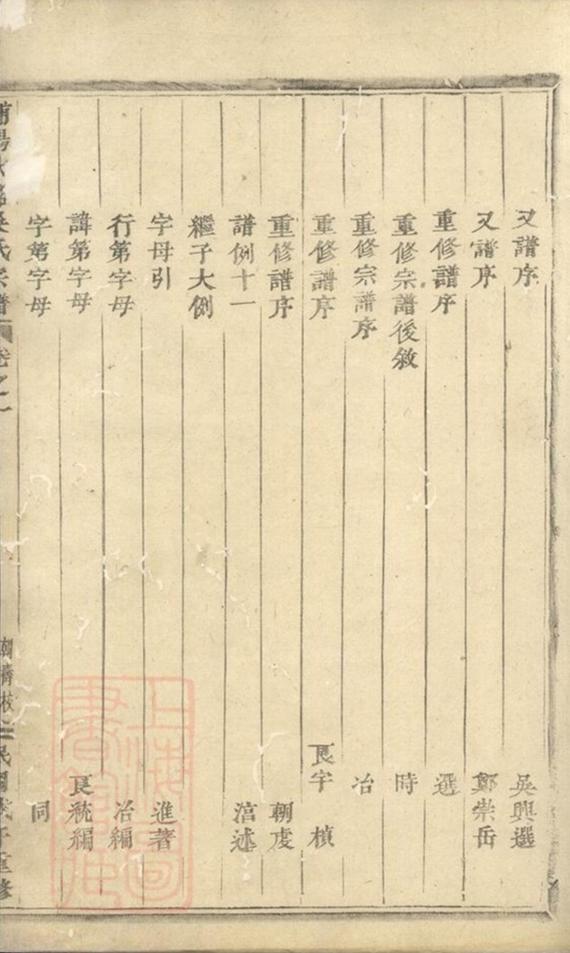 又譜序 吳興選
又譜序 鄭崇岳
重修譜序 選
重修宗譜後敘 時
重修宗譜序 冶
重修譜序 良宇 楨
重修譜序 朝虔
譜例十一 涫述
繼子大例
字母引 進著
行第字母 冶編
諱第字母 良統編
字第字母 同
吳氏宗譜 卷之一 民國戊子重修
上海圖書館藏